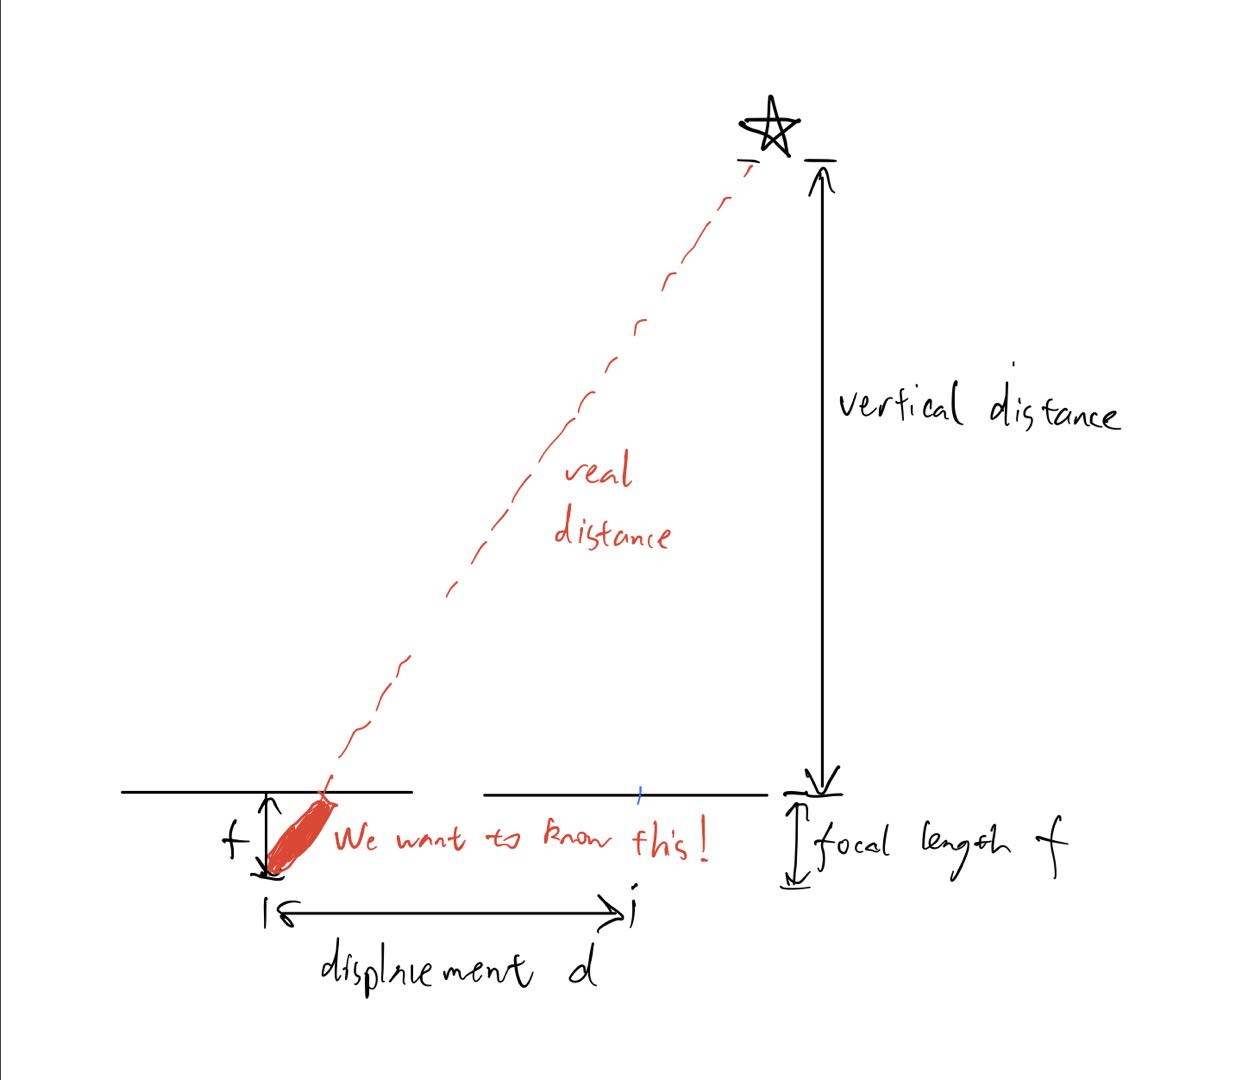 vertical distance
real
distance
f
We want to know this!
focal length f
displacement d